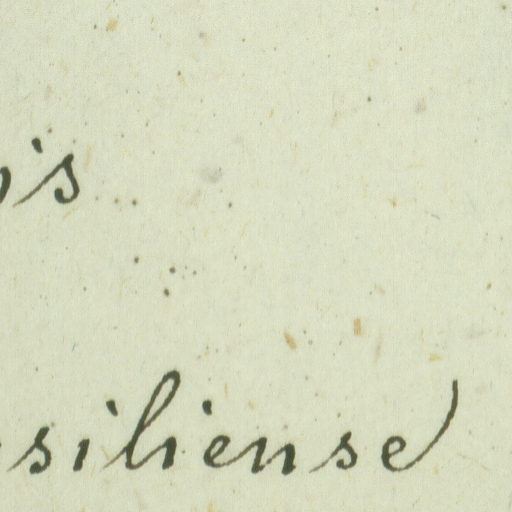 is
siliense